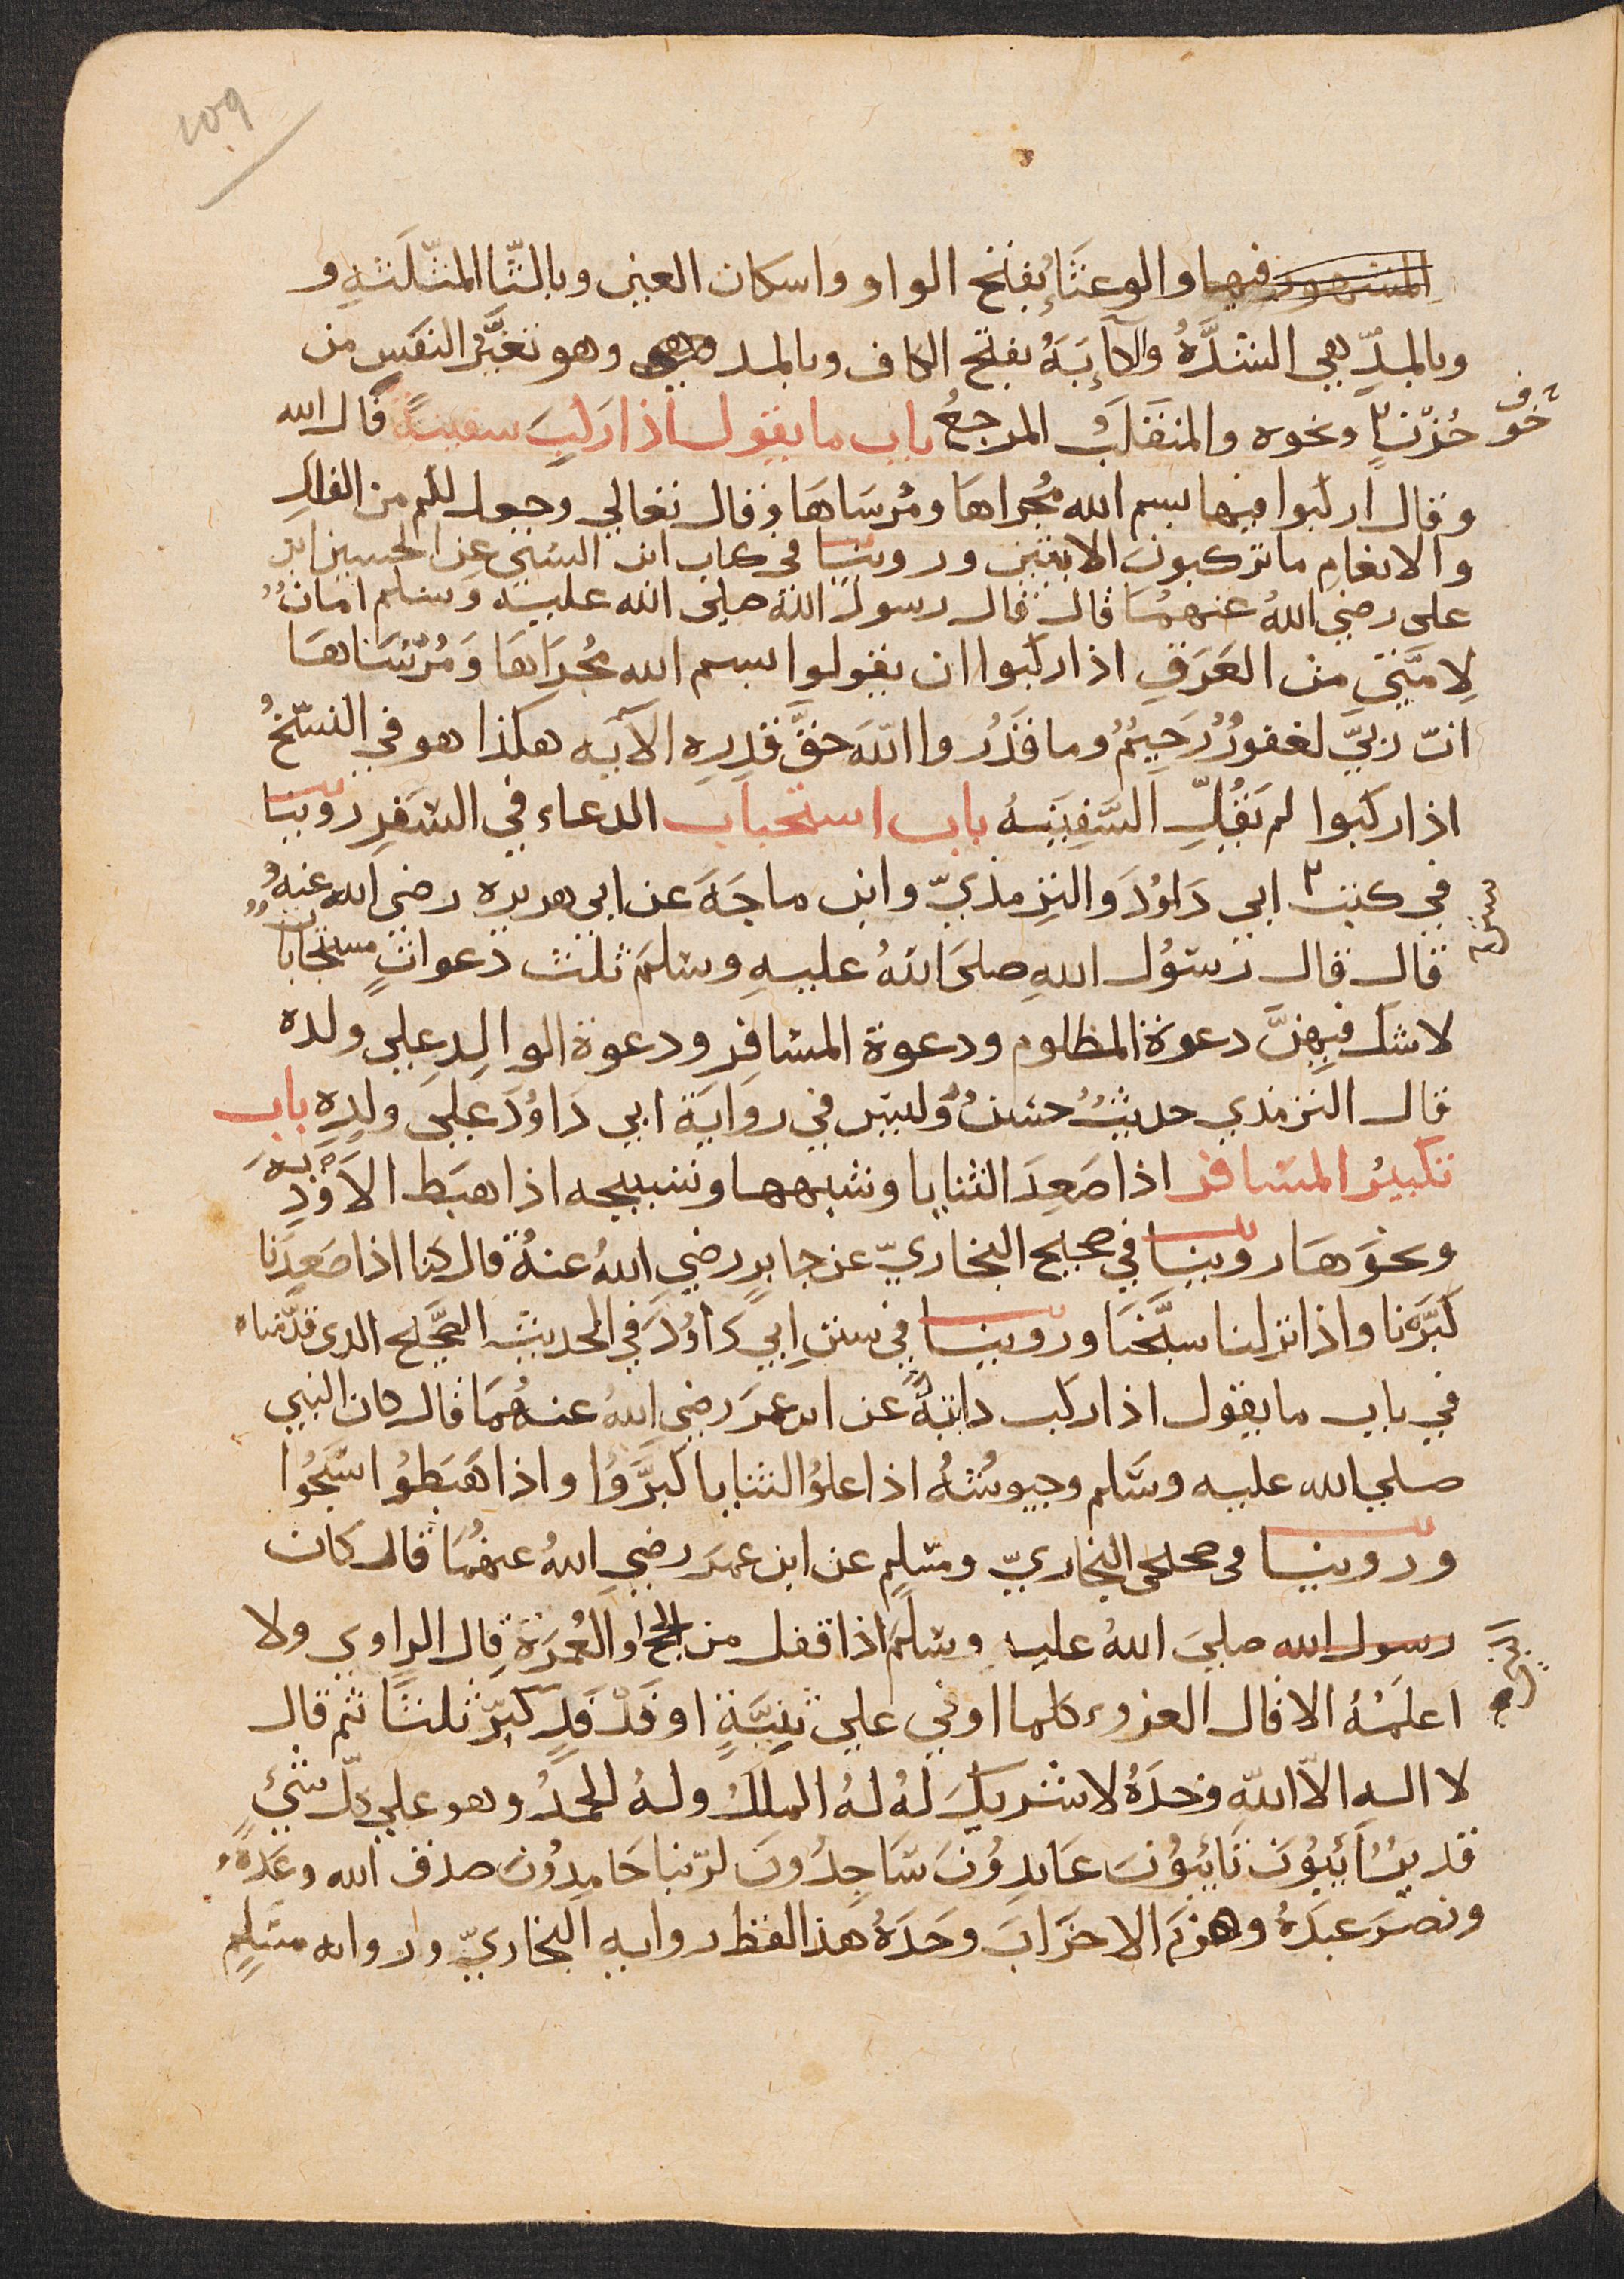 109
المشهور فيها والوعثَاءُ بفتح الواو واسكان العين وبالثّا المثّلثةِ و
وبالمدِّ هي الشدَّةُ والكآبَةُ بفتح الكاف وبالمد وهو تغيُّر النفسِ من
خوف
حُزنٍ ونحوه والمنقَلَبُ المرجعُ باب ما يقول اذا ركبَ سفينةً قال الله
وقال اركبوا فيها بسم الله مُجراها ومُرسَاهَا وقال تعالي وجعل لكم من الفلكِ
والانعامِ ما تركبونَ الايتين وروينا في كتاب ابن السُني عن الحسين ابن
علي رضي اللهُ عنهمُا قال قال رسولُ الله صلى الله عليه وسلم امانٌ
لامَّتي من الغَرَقِ اذا ركبوا ان يقولوا بسم الله مُجرَاهَا وَمُرْسَاهَا
انّ ربيّ لغفورٌ رَحيمٌ وما قَدَرُوا اللهَ حقَّ قدرِه الآيه هكذا هو في النسّخُ
اذا ركبوا لم يَقُل السَّفِينهُ باب استحباب الدعاء في السَفرِ روينا
في كتب ابي دَاوُدَ والترمذيّ وابن ماجَهَ عن ابي هريره رضي الله عنهُ
قال قال رسوُل اللهِ صلىَ اللهُ عليهِ وسلمَ ثلث دعواتٍ مستجاباتٌ
لا شك فيهنَّ دعوة المظلوم ودعوة المسافِر ودعوة الوالِدِ على ولده
قال الترمذي حديثٌ حسنٌ وليسَ في روايَة ابي دَاوُدَ عَلىَ ولدِهِ باب
تكبيرُ المسافر اذا صَعِدَ الثنايا وشبهها وتسبيحه اذا هبَط الاَوْدِيَةَ
ونحوَهَا روينا في صحيح البخاريّ عن جابرٍ رضي اللهُ عنهُ قال كنا اذا صَعِدنا
كَبَّرْنا واذا نزلنا سبَّحْنَا وروينا في سننِ ابي دَاوُدَ في الحديث الصَّحيح الدى قدّمناه
في باب ما يقول اذا ركب دابَّةً عن ابن عمَرَ رضي اللهُ عنهُمَا قال كان النبي
صلي الله عليه وسَّلم وجيوشُهُ اذا علوُا الثنايا كبَّرُوا واذا هَبَطوُا سَّبحُوا
وروينا في صحيحي البخاريّ ومسلمٍ عن ابن عمَرَ رضي اللهُ عنهُمَا قال كان
رسول الله صليَ اللهُ عليه وسلمَ اذا قفل من الحج او العُمَرَةِ قال الراوي ولا
اعلمهُ الا قال الغزو كلما اوفي علي ثنِيَّةٍ او فَدْفَدٍ كبّرَ ثلثًا ثم قال
لا اله الاّ اللّه وحدَهُ لا شريكَ لهُ لهُ الملكُ ولهُ الحَمدُ وهو علي كلّ شيْءٍ
قديرٌ آئِبُونَ تَائبُونَ عَابدِوُنَ سَّاجِدُونَ لربّنا حَامدِوُنَ صدق الله وعَدهُ
ونصَرَ عبدَهُ وهزَمَ الاحزَابَ وحَدَهُ هذا لفظ روايه البخاريّ وروايه مسَلمٍ